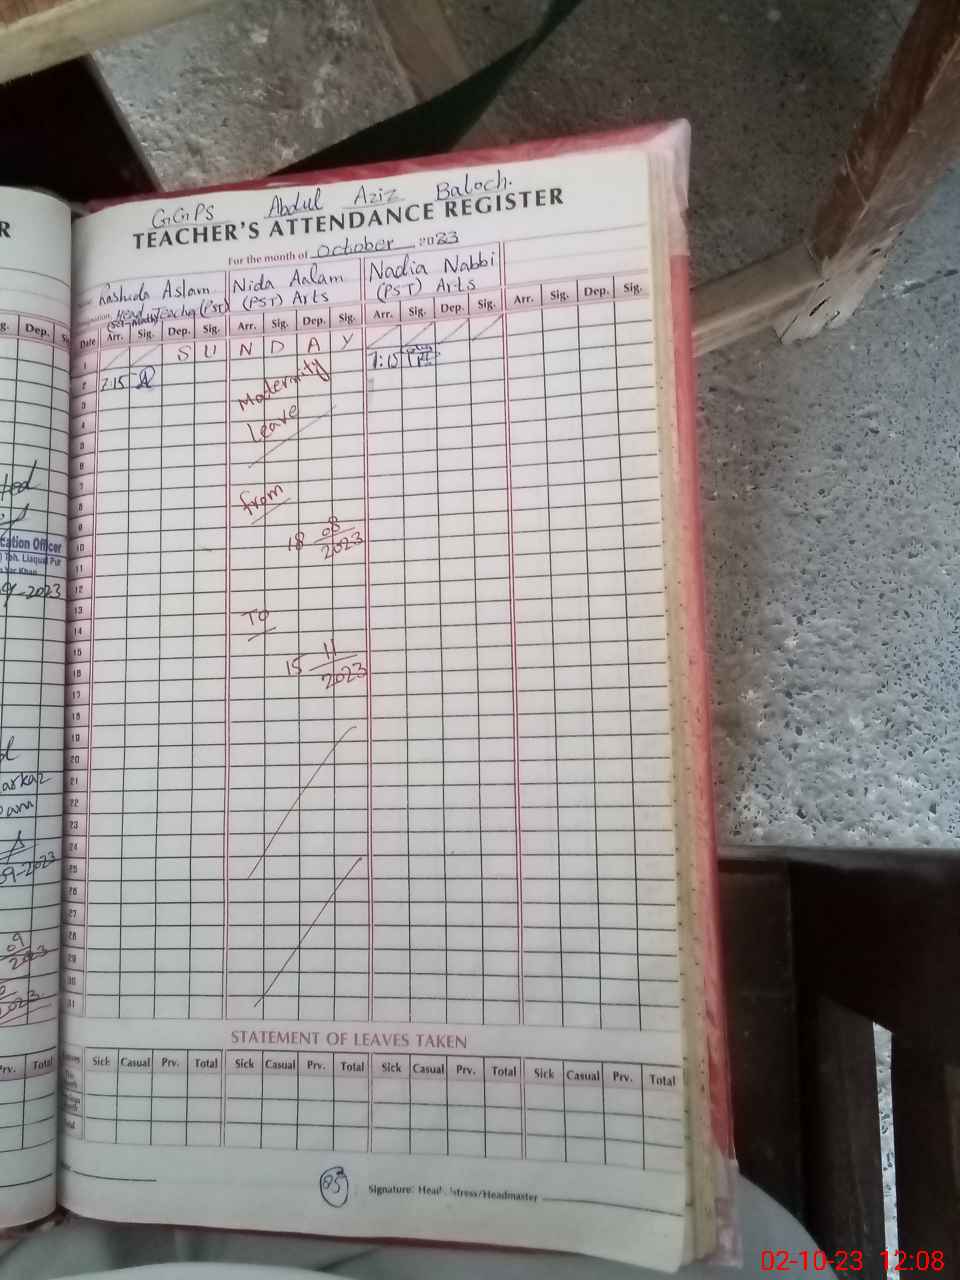 GGPS Abdul Aziz Baloch.
TEACHER'S ATTENDANCE REGISTER
For the month of October 2023
Rashida Aslam Nida Aalam Nadia Nabbi
Head Teacher (PST) (PST) Arts (PST) Arts
(Sci-Math)
Date Arr. Sig. Dep. Sig. Arr. Sig. Dep. Sig. Arr. Sig. Dep. Sig. Arr. Sig. Dep. Sig.
1 S U N D A Y
2 7:15 7:15
Maternity
3
4
Leave
5
6
7
8
from
9
10
18 08
2023
11
12
13
To
14
15
15 11
16
2023
17
18
19
20
21
22
23
24
25
26
27
28
29
30
31
STATEMENT OF LEAVES TAKEN
Sick Casual Prv. Total Sick Casual Prv. Total Sick Casual Prv. Total Sick Casual Prv. Total
85
Signature: Headmistress/Headmaster
R
g. Dep.
cation Officer
Tph. Liaquat Pur
Yar Khan
9-2023
arkaz
09-2023
09
2023
2023
Prv. Total
02-10-23 12:08